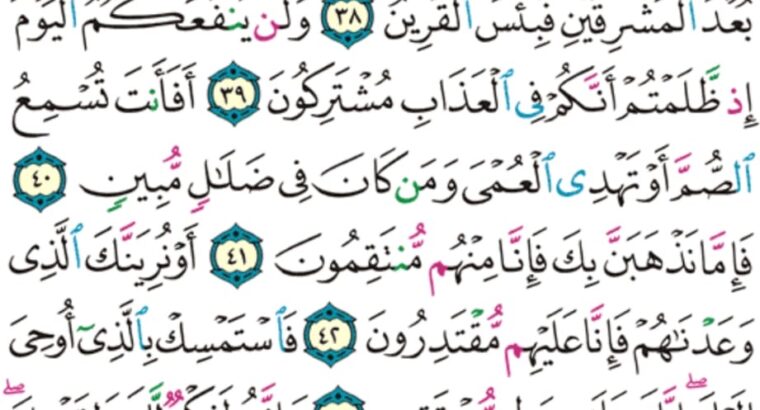 بُعْدَ ٱلْمَشْرِقَيْنِ فَبِئْسَ ٱلْقَرِينُ ٣٨ وَلَن يَنفَعَكُمُ ٱلْيَوْمَ
إِذ ظَّلَمْتُمْ أَنَّكُمْ فِى ٱلْعَذَابِ مُشْتَرِكُونَ ٣٩ أَفَأَنتَ تُسْمِعُ
ٱلصُّمَّ أَوْ تَهْدِى ٱلْعُمْىَ وَمَن كَانَ فِى ضَلَـٰلٍ مُّبِينٍ ٤٠
فَإِمَّا نَذْهَبَنَّ بِكَ فَإِنَّا مِنْهُم مُّنتَقِمُونَ ٤١ أَوْ نُرِيَنَّكَ ٱلَّذِى
وَعَدْنَـٰهُمْ فَإِنَّا عَلَيْهِم مُّقْتَدِرُونَ ٤٢ فَٱسْتَمْسِكْ بِٱلَّذِىٓ أُوحِىَ